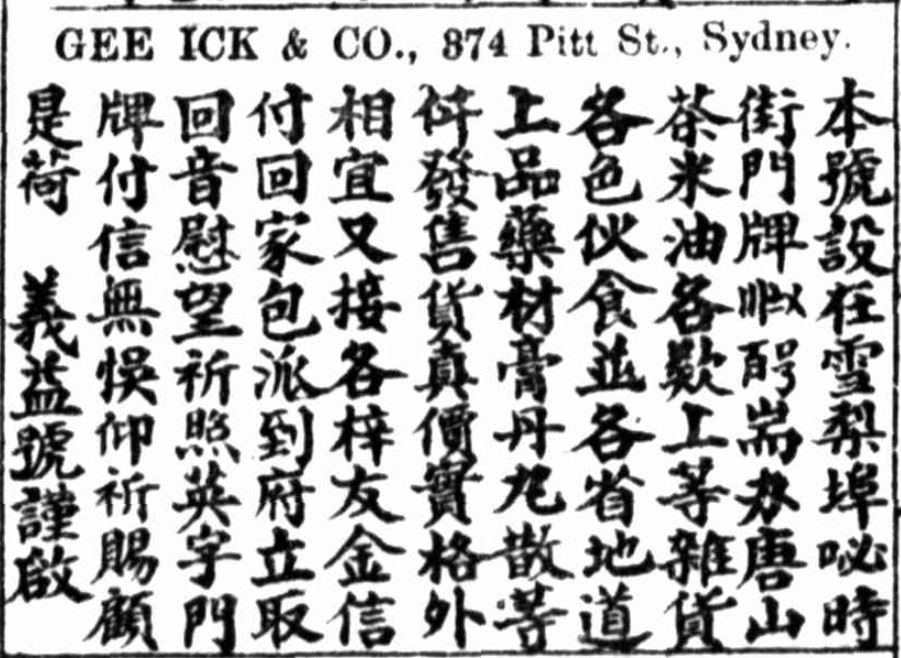 GEE ICK & CO., 374 Pitt St., Sydney.
本號設在雪梨埠咇時
街門牌〣〧〤百号耑办唐山
茶米油各欵上等雜貨
各色伙食並各省地道
上品藥材膏丹丸散等
件發售貨真價實格外
相宜又接各梓友金信
付回家包派到府立取
回音慰望祈照英字門
牌付信無悞仰祈賜顧
是荷 義益號謹啟